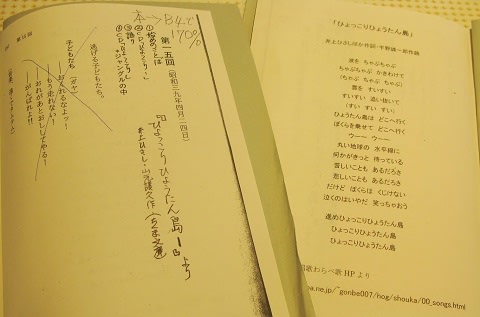 本→B4で
170%
第一五回 (昭和三九年四月二四日)
『ひょっこりひょうたん島1』より
井上ひさし・山元護久作(ちくま文庫)
③語り
ジャングルの中
逃げる子どもたち。
子どもたち (ガヤ)
──おくれるなよッ!
──もう走れない!
──おれがあとおししてやる!
──がんばれよ!!
「ひょっこりひょうたん島」
井上ひさしほか作詞・宇野誠一郎作曲
波を ちゃぷちゃぷ
ちゃぷちゃぷ かきわけて
(ちゃぷ ちゃぷ ちゃぷ)
雲を すいすい
すいすい 追い抜いて
(すい すい すい)
ひょうたん島は どこへ行く
ぼくらを乗せて どこへ行く
ウーー ウーー
丸い地球の 水平線に
何かがきっと 待っている
苦しいことも あるだろさ
悲しいことも あるだろさ
だけど ぼくらは くじけない
泣くのはいやだ 笑っちゃおう
進めひょっこりひょうたん島
ひょっこりひょうたん島
ひょっこりひょうたん島
歌わらべ歌 HP より
na.ne.jp/~gonbe007/hog/shouka/00_songs.html